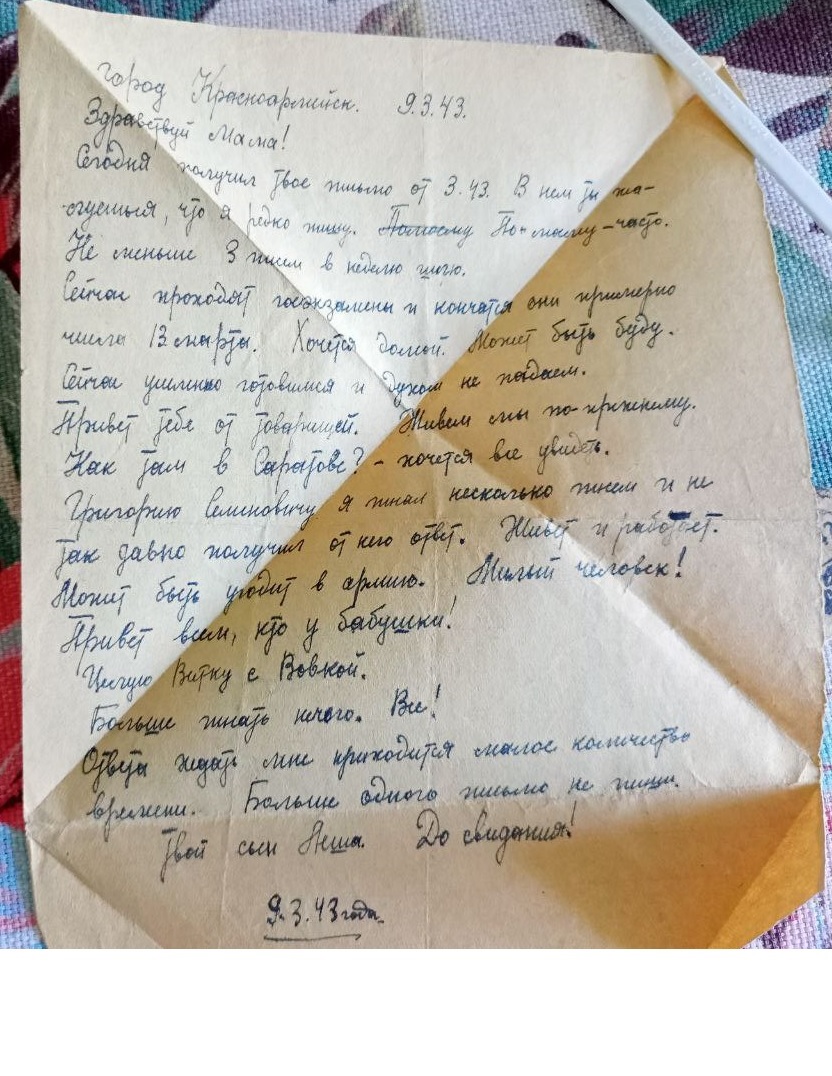 город Красноармейск. 9.3.43.
Здравствуй Мама!
Сегодня получил твое письмо от 3.43. В нем ты жа-
луешься, что я редко пишу. Помоему По-моему-часто.
Не меньше 3 писем в неделю шлю.
Сейчас проходят госэкзамены и кончатся они примерно
числа 13 марта. Хочется домой. Может быть буду.
Сейчас усиленно готовимся и духом не падаем.
Привет тебе от товарищей. Живем мы по-прежнему.
Как там в Саратове? - хочется все увидеть.
Григорию Семеновичу я писал несколько писем и не
так давно получил от него ответ. Живет и работает.
Может быть угодит в армию. Милый человек!
Привет всем, кто у бабушки!
Целую Витку с Вовкой.
Больше писать нечего. Все!
Ответа ждать мне приходится малое количество
времени. Больше одного письмо не пиши.
Твой сын Леша. До свидания!
9.3.43 года.